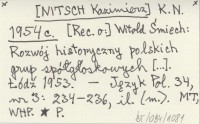 [NITSCH Kazimierz] K.N.
1954c. [Rec. o:] Witold Śmiech:
Rozwój historyczny polskich
grup spółgłoskowych [..].
Łódź 1953. – Język Pol. 34,
nr 3: 234-236, il. (m.). MT,
WHP. ★ P.